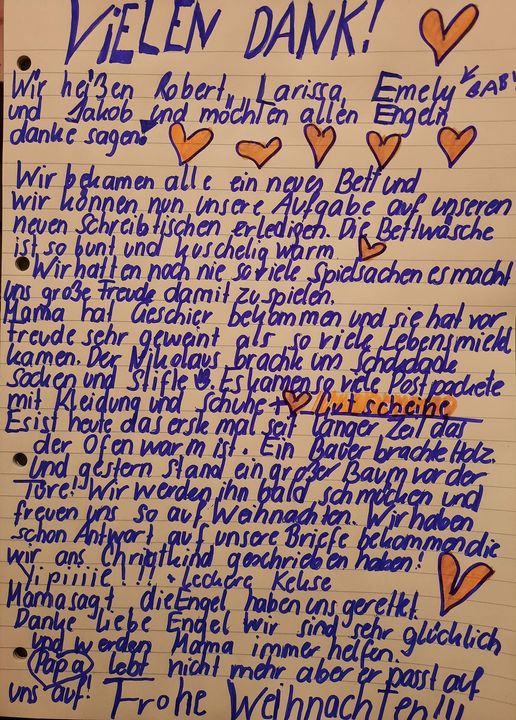 VIELEN DANK!
Wir heißen Robert, Larissa, Emely BABY
und Jakob und möchten allen Engeln
danke sagen!
Wir bekamen alle ein neues Bett und
wir können nun unsere Aufgabe auf unseren
neuen Schreibtischen erledigen. Die Bettwäsche
ist so bunt und kuschelig warm.
Wir hatten noch nie so viele Spielsachen es macht
uns große Freude damit zu spielen.
Mama hat Geschier bekommen und sie hat vor
freude sehr geweint als so viele Lebensmiehl
kamen. Der Nikolaus brachte uns schokolade
Socken und Stifte. Es kamen so viele Postpackete
mit Kleidung und schuhe + Gutscheine
Es ist heute das erste mal seit langer Zeit das
der Ofen warm ist. Ein Bauer brachte Holz.
und gestern stand ein großer Baum vor der
Türe! Wir werden ihn bald schmücken und
freuen uns so auf Weihnachten. Wir haben
schon Antwort auf unsere Briefe bekommen die
wir ans Christkind geschrieben haben!
Yipiiiie!!! + Leckere Kekse
Mama sagt die Engel haben uns gerettet.
Danke liebe Engel wir sind sehr glücklich
und werden Mama immer helfen.
Papa lebt nicht mehr aber er passt auf
uns auf! Frohe Weihnachten!!!